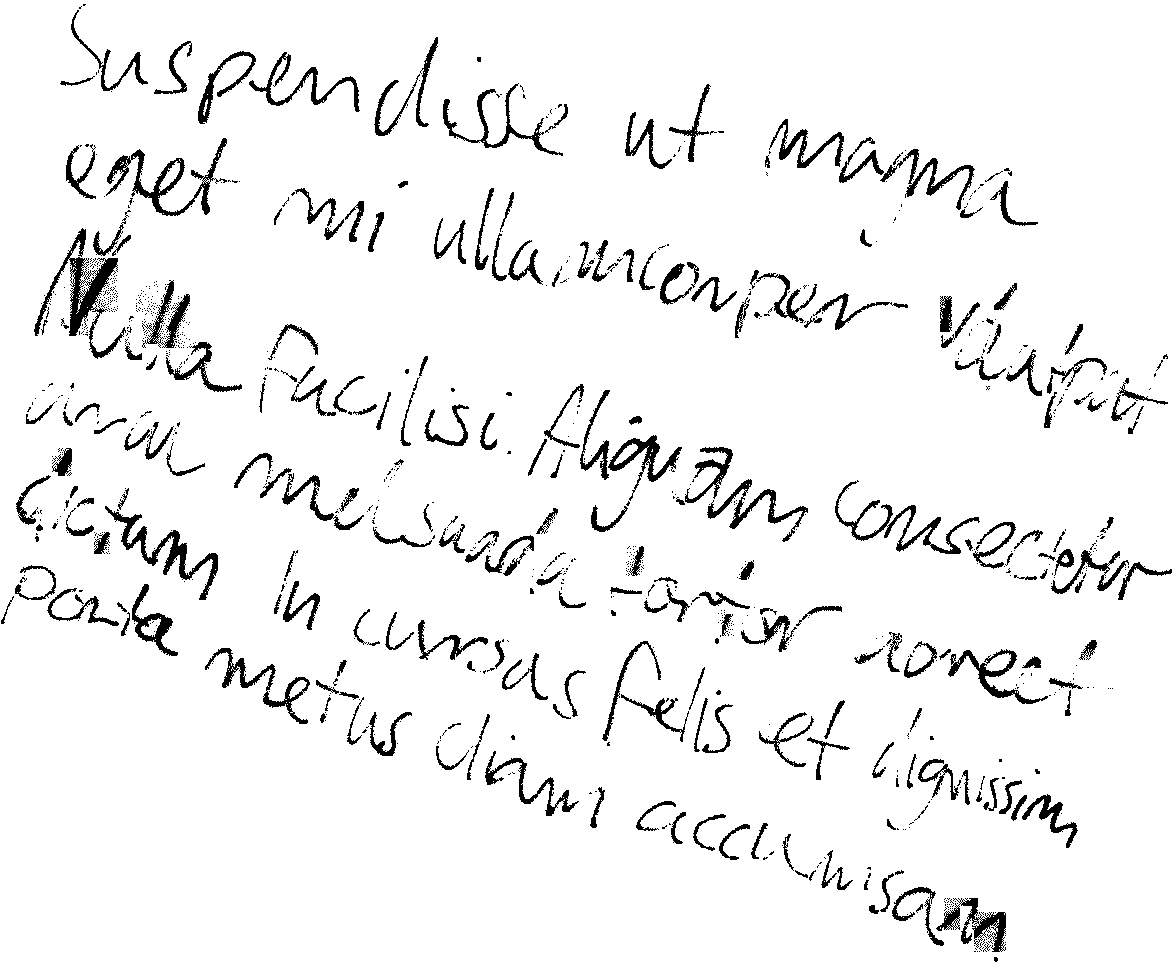 Suspendisse ut magna
eget mi ullamcorper
Nulla facilisi. Aliquam consectetur
tortor
dictum in cursus felis et dignissim
porta metus diam accumsan